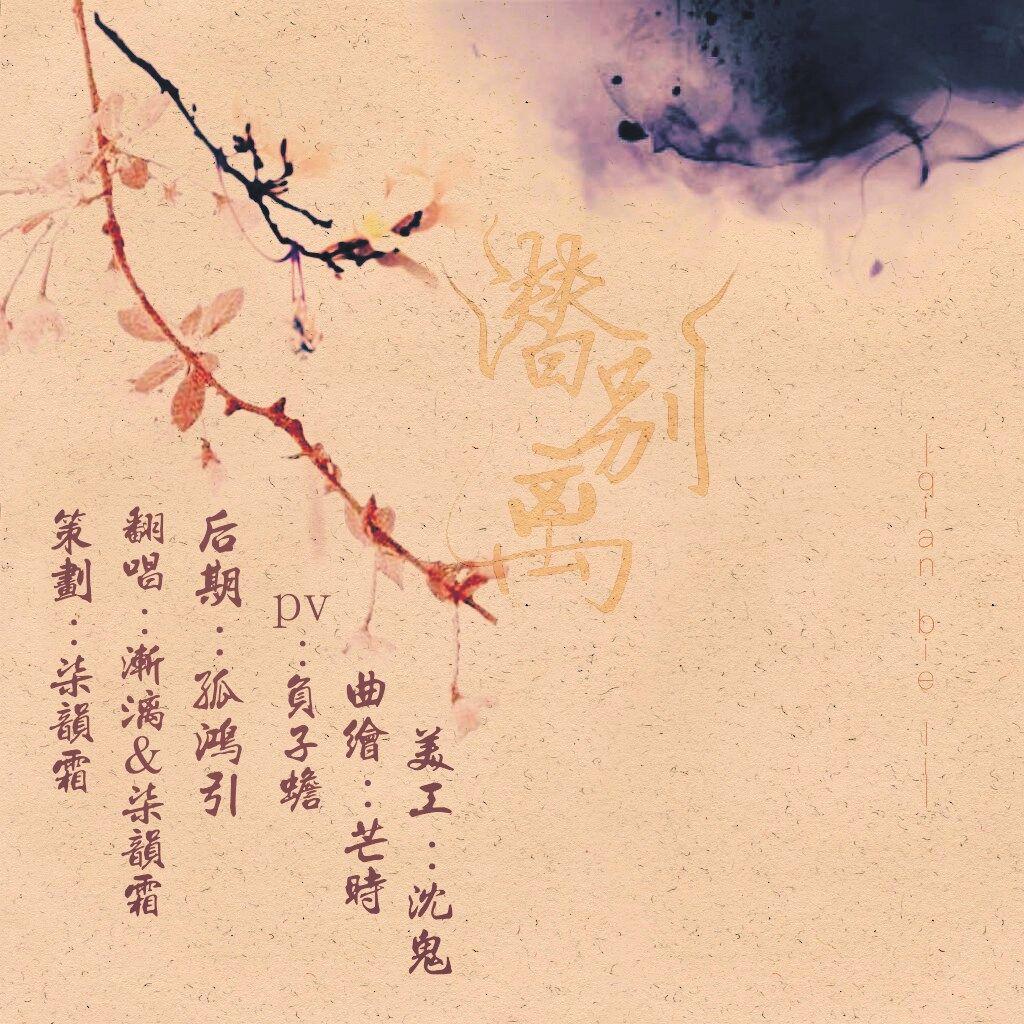 潛別离
qian bie li
策劃：柒韻霜
翻唱：漸漓&柒韻霜
后期：孤鴻引
pv：負子蟾
曲繪：芒時
美工：沈鬼